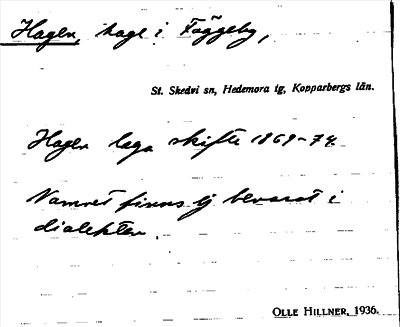 Hagen, hage i Faggeby,
St. Skedvi sn, Hedemora tg, Kopparbergs län.
Hagen laga skifte 1869-74.
Namnet finns ej bevarat i
dialekten.
OLLE HILLNER, 1936.